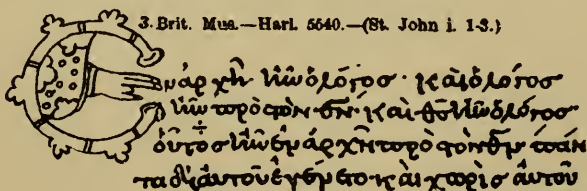 3. Brit. Mus.—Harl. 5540.—(St. John i. 1-3.)
Ἐν ἀρχῆ ἦν ὁ λόγος· καὶ ὁ λόγος
ἦν πρὸς τὸν θν· καὶ θς ἦν ὁ λόγος
οὗτος ἦν ἐν ἀρχῆ πρὸς τὸν θν· πάν
τα δι αὐτοῦ ἐγένετο· καὶ χωρὶς αὐτοῦ